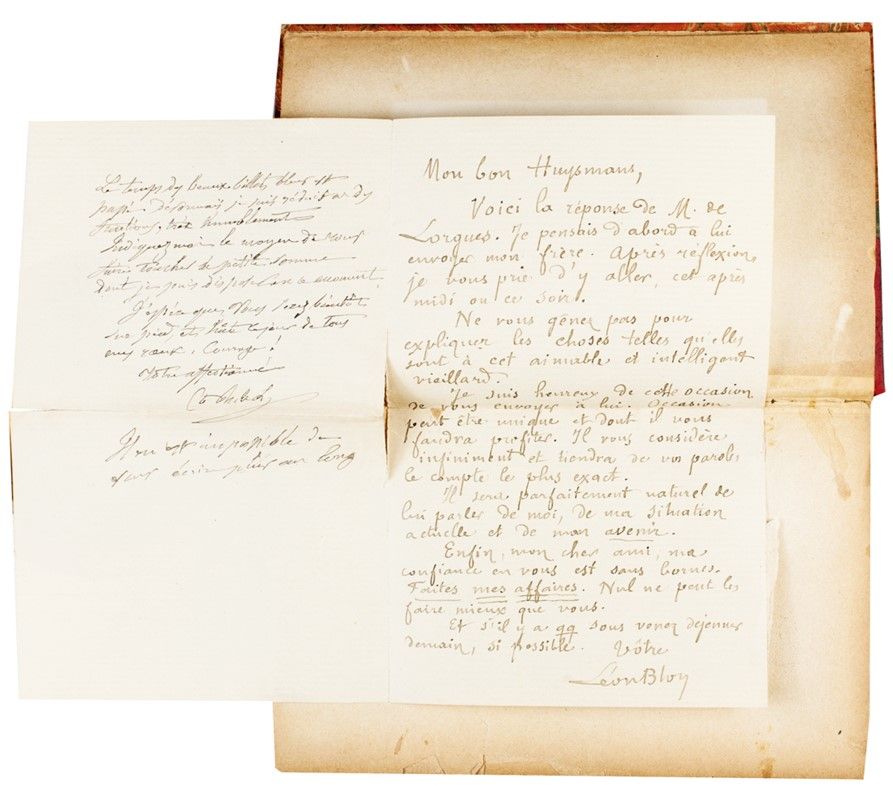 Le temps des beaux billets bleus est
passé. Désormais je suis réduit aux
fractions, très humblement
Indiquez moi le moyen de vous
faire toucher la petite somme
dont je puis disposer en ce moment.
J'espère que vous serez bientôt
sur pied, et
Courage!
Votre affectionné
impossible de
vous écrire plus au long
Mon bon Huysmans,
Voici la réponse de M. de
Lorgues. Je pensais d'abord à lui
envoyer mon frère. Après réflexion,
je vous prie d'y aller, cet après
midi ou ce soir.
Ne vous gênez pas pour
expliquer les choses telles qu'elles
sont à cet aimable et intelligent
vieillard.
Je suis heureux de cette occasion
de vous envoyer à lui. Occasion
peut être unique et dont il vous
faudra profiter. Il vous considère
infiniment et tiendra de vos paroles
le compte le plus exact.
Il sera parfaitement naturel de
lui parler de moi, de ma situation
actuelle et de mon avenir.
Enfin, mon cher ami, ma
confiance en vous est sans bornes.
Faites mes affaires. Nul ne peut les
faire mieux que vous.
Et s'il y a qq sous venez déjeuner
demain, si possible. Vôtre
Léon Bloy